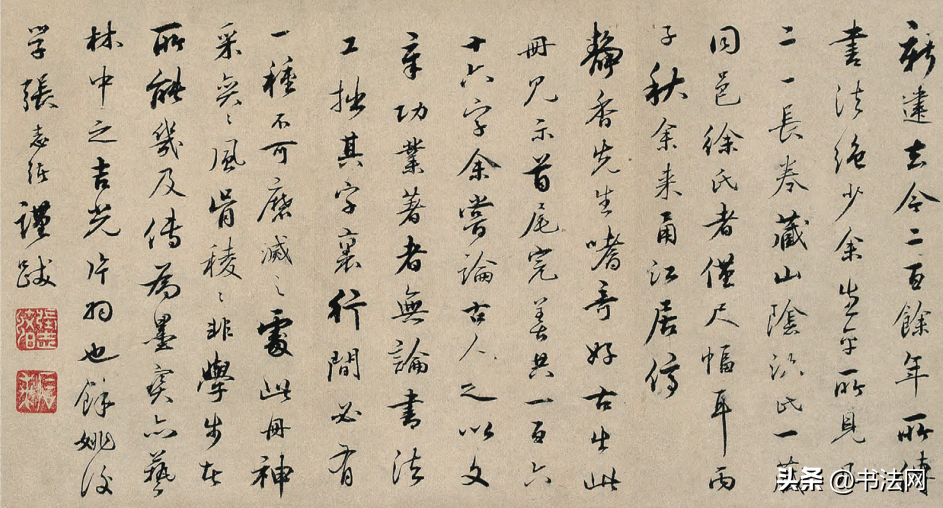 新建去今二百餘年所傳
書法絕少余生平所見止
二一長卷藏山陰沈氏一藏
同邑徐氏者僅尺幅耳丙
子秋余來甬江居停
靜香先生嗜奇好古出此
冊見示首尾完善共一百六
十六字余嘗論古人之以文
章功業著者無論書法
工拙其字裏行間必有
一種不可磨滅之處此冊神
采奕〻風骨稜〻非學步者
所能幾及傳為墨寶亦藝
林中之吉光片羽也餘姚後
學張志謹跋
头条 @书法网